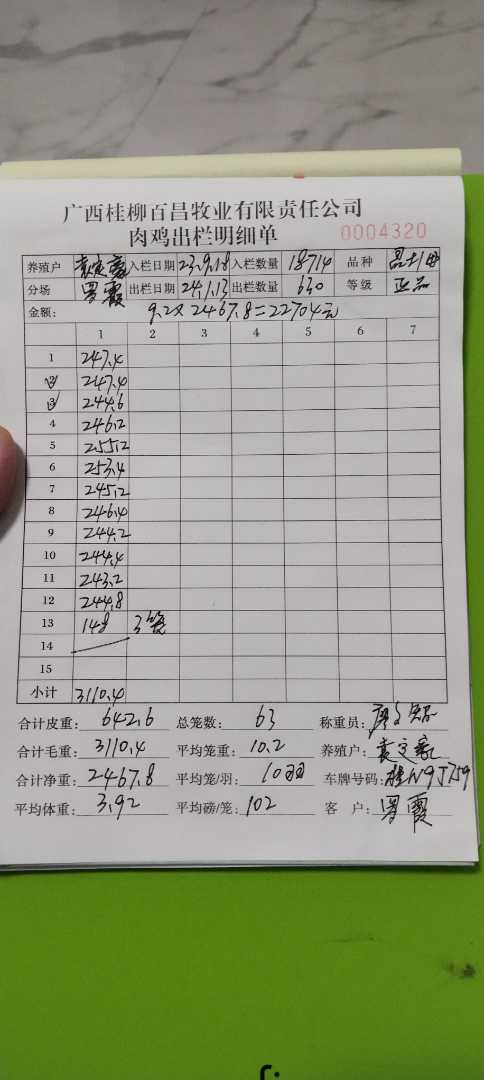 广西桂柳百昌牧业有限责任公司
肉鸡出栏明细单 0004320
养殖户 袁定豪 入栏日期 23.9.18 入栏数量 18714 品种
分场 罗霞 出栏日期 24.1.13 出栏数量 630 等级 正品
金额: 9.2×2467.8=22704元
1 2 3 4 5 6 7
1 247.4
2 247.4
3 244.6
4 246.2
5 255.2
6 253.4
7 245.2
8 246.4
9 244.2
10 244.4
11 243.2
12 244.8
13 148 3笼
14
15
小计 3110.4
合计皮重: 642.6 总笼数: 63 称重员:
合计毛重: 3110.4 平均笼重: 10.2 养殖户: 袁定豪
合计净重: 2467.8 平均笼/羽: 10羽 车牌号码: 桂N9J759
平均体重: 3.92 平均磅/笼: 102 客 户: 罗霞